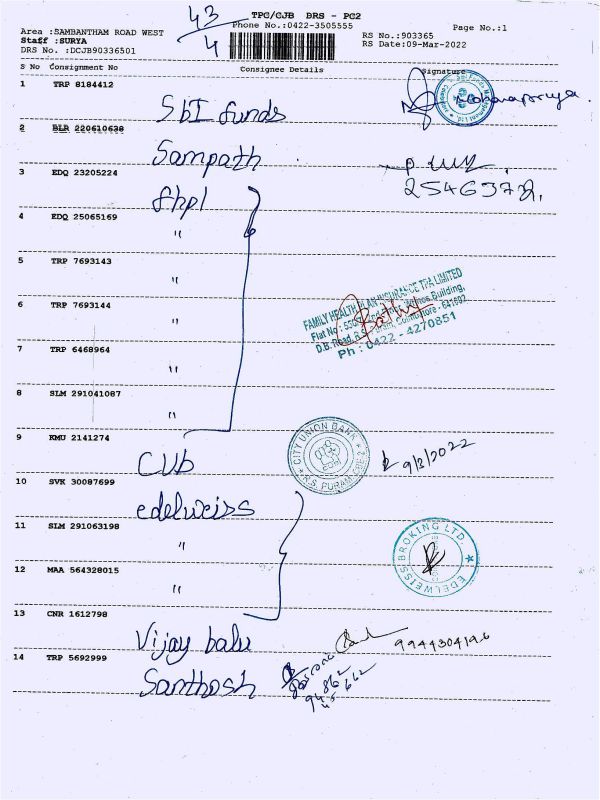 43
4
TPC/CJB DRS - PC2
Phone No.:0422-3505555
Page No.:1
Area :SAMBANTHAM ROAD WEST
Staff :SURYA
DRS No. :DCJB90336501
RS No.:903365
RS Date:09-Mar-2022
S No Consignment No Consignee Details Signature
1 TRP 8184412
SbI funds
2 BLR 220610638
Sampath
3 EDQ 23205224
fhpl
4 EDQ 25065169
"
5 TRP 7693143
"
6 TRP 7693144
"
FAMILY HEALTH PLAN INSURANCE TPA LIMITED
Building,
D.B. Road, R.S. Puram, Coimbatore - 641002
Ph : 0422 - 4270851
7 TRP 6468964
"
8 SLM 291041087
"
9 KMU 2141274
CUb
CITY UNION BANK
R.S. PURAM
9/3/2022
10 SVK 30087699
edelweiss
11 SLM 291063198
"
EDELWEISS BROKING LTD.
12 MAA 564328015
"
13 CNR 1612798
Vijay balu
9944304196
14 TRP 5692999
Santhosh